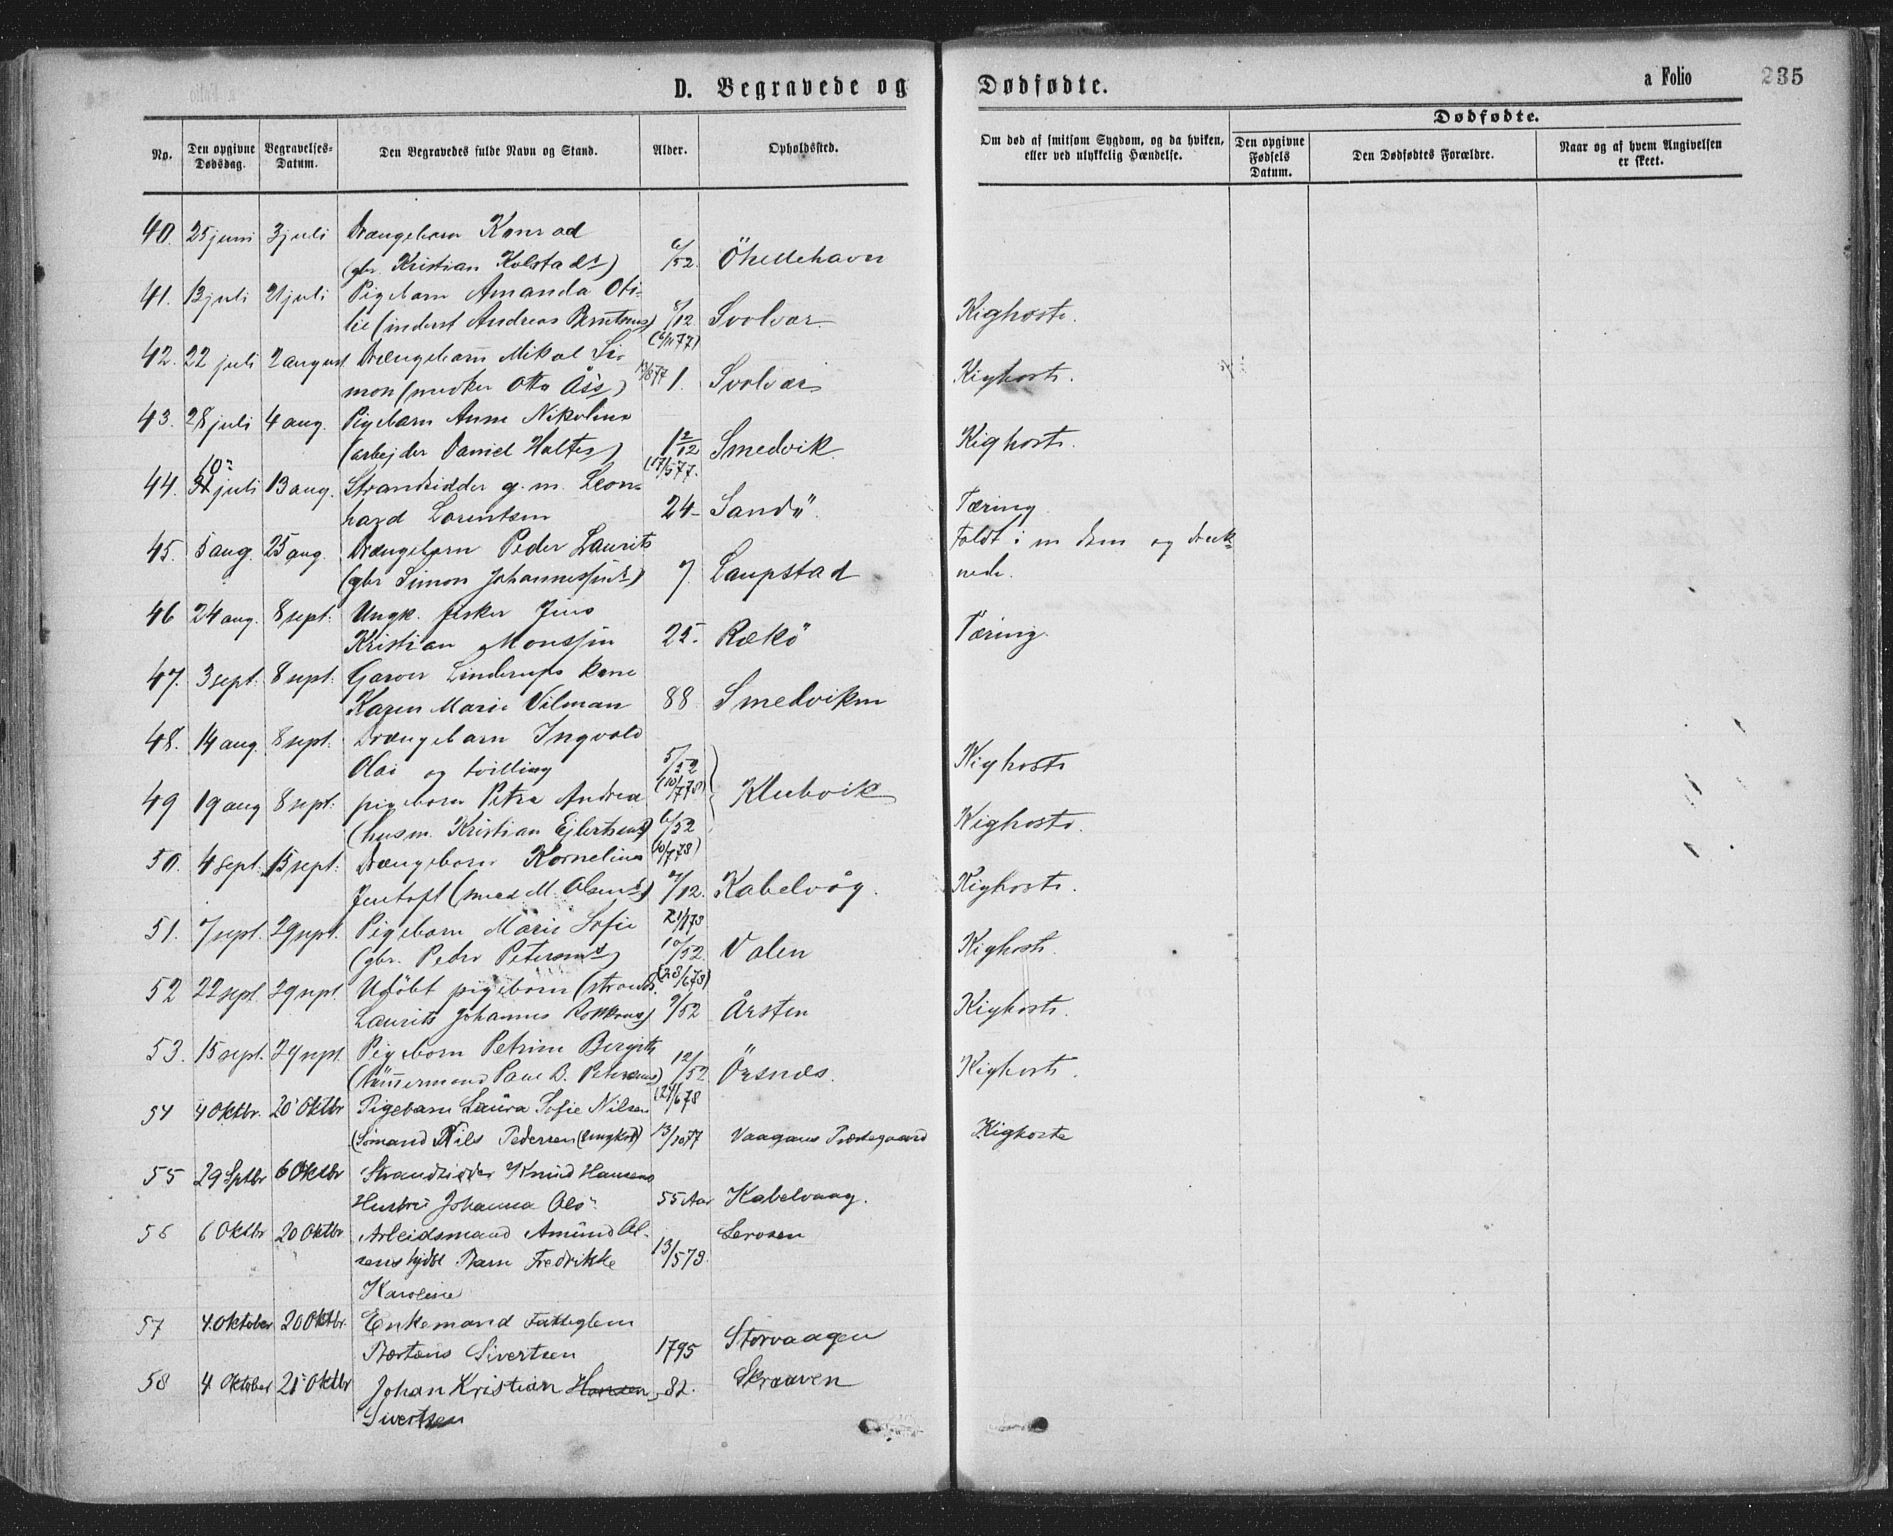 D. Begravede og Dødfødte. a Folio 235
No. Den opgivne Dødsdag. Begravelses-Datum. Den Begravedes fulde Navn og Stand. Alder. Opholdssted. Om død af smitsom Sygdom, og da hviken, eller ved ulykkelig Hændelse. Dødfødte.
Den opgivne Fødsels Datum. Den Dødfødtes Forældre. Naar og af hvem Angivelsen er skeet.
40. 25 juni 3 juli Drængebarn Konrad
(gbr. Kristian Kolstads) 6/52.
41. 13 juli 21 juli Pigebarn Amanda Oti-
lie (inderst Andreas Berntsens) 8/12 Svolvær. Kighoste.
42. 22 juli 2 august Drængebarn Mikal Si-
mon (snedker Otto Ås's) 1. Svolvær Kighoste.
43. 28 juli 4 aug. Pigebarn Anne Nikoline
(arbejder Daniel Holtes) 1 2/12 Smedvik. Kighoste.
(17/577.
44. juli 13 aug. Strandsidder g. m. Leon-
hard Lorentsen 24- Sandö. Tæring.
45. 5 aug. 25 aug. Drængebarn Peder Laurits Faldt i en dam og druk-
(gbr Simon Johannessens) 7. Laupstad nede.
46 24 aug. 8 sept. Ungk. fisker Jens
Kristian Monssen 25. Rækö Tæring.
47. 3 sept. 8 sept. Garver Linderups kone
Karen Marie Vilman 88 Smedviken
48. 14 aug. 8 sept. Drængebarn Ingvald
Olai og tvilling 5/52 Kighoste
(10/778)
49 19 aug 8 sept. pigebarn Petra Andrea Klubvik
(husm. Kristian Ejlertsens) 6/52 Kighoste.
(10/778)
50. 4 sept. 15 sept. Drængebarn Kornelius
Jentoft (M. Olsens) /12. Kabelvåg. Kighoste.
51. 7 sept. 29 sept. Pigebarn Marie Sofie
(gbr. Peder Petersens) 10/52. Valen Kighoste.
(28/678)
52 22 sept. 29 sept. Udöbt pigebarn (strands.
Laurits Johannes) 2/52 Årsten Kighoste.
53. 15 sept. 29 sept. Pigebarn Petrine Bergitte
(Tömmermand Paul B. Petersens) 12/52 Örsnes. Kighoste.
(24/678
54 4 Oktbr. 20 Oktbr Pigebarn Laura Sofie Nilsen
(Sömand Nils Pedersen (ungkar) 13/1077 Vaagans Præstegaard Kighoste
55 29 Sptbr 6 Oktbr Strandsidder Knud Hansens
Hustru Johanna Ols- 55 Aar Kabelvaag.
56 6 Oktbr 20 Oktbr Arbeidsmand Amund Ol-
sens Barn Fredrikke 13/578. Lerosen
Karoline
57 4. Oktober 20 Oktbr. Enkemand Fattiglem
Sivertsen 1795 Storvaagen
58 4 Oktober 21 Oktbr Johan Kristian Hansen 82. Skraaven
Sivertsen